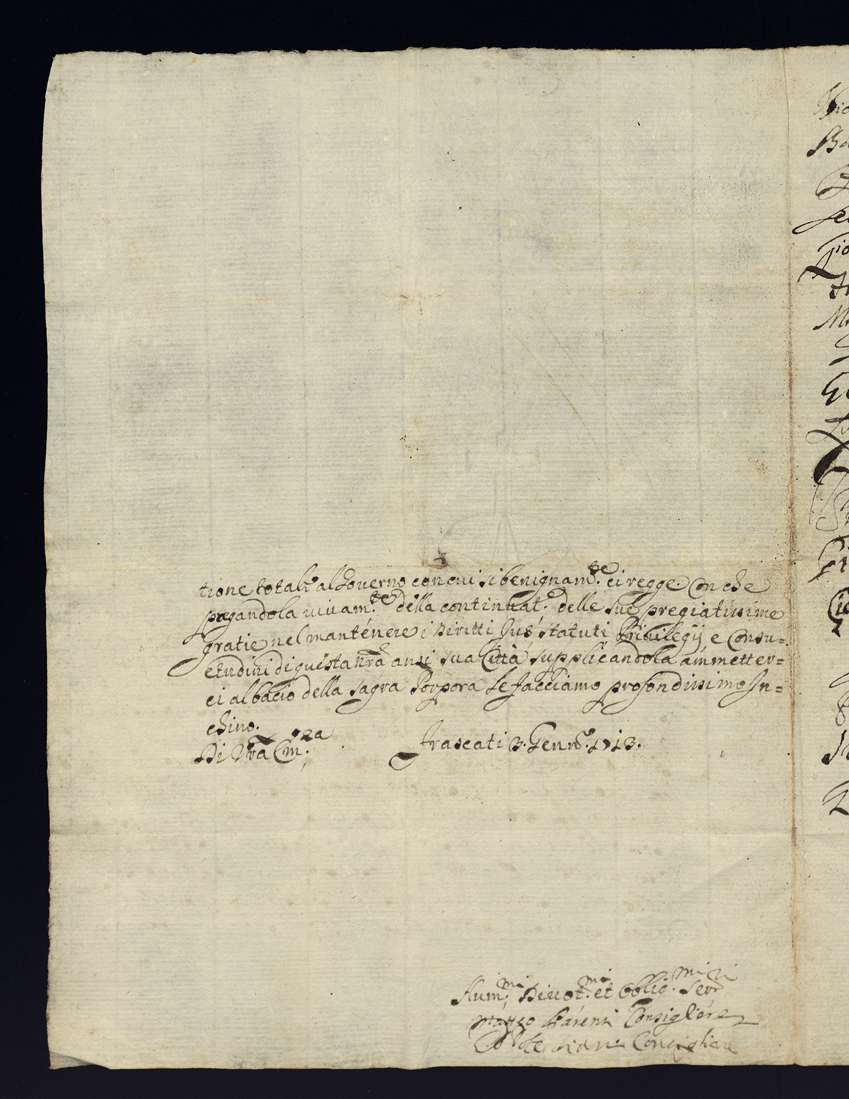 tione totale al Governo con cui si benignam.te ci regge. Con che
pregandola vivam.te della continuat.e delle sue pregiatissime
gratie nel mantenere i Diritti Jus' statuti Privilegij e Consu=
etudini di questa nra anzi sua Città supplicandola ammetter=
ci al bacio della Sagra Porpora Le facciamo profondissimo In=
chino.
Di Vra Em.za Frascati 3. Genn.o 1713.
Hum.mi Divot.mi et Oblig.mi Ser.ri
Parenti Consigliere
Consigliere